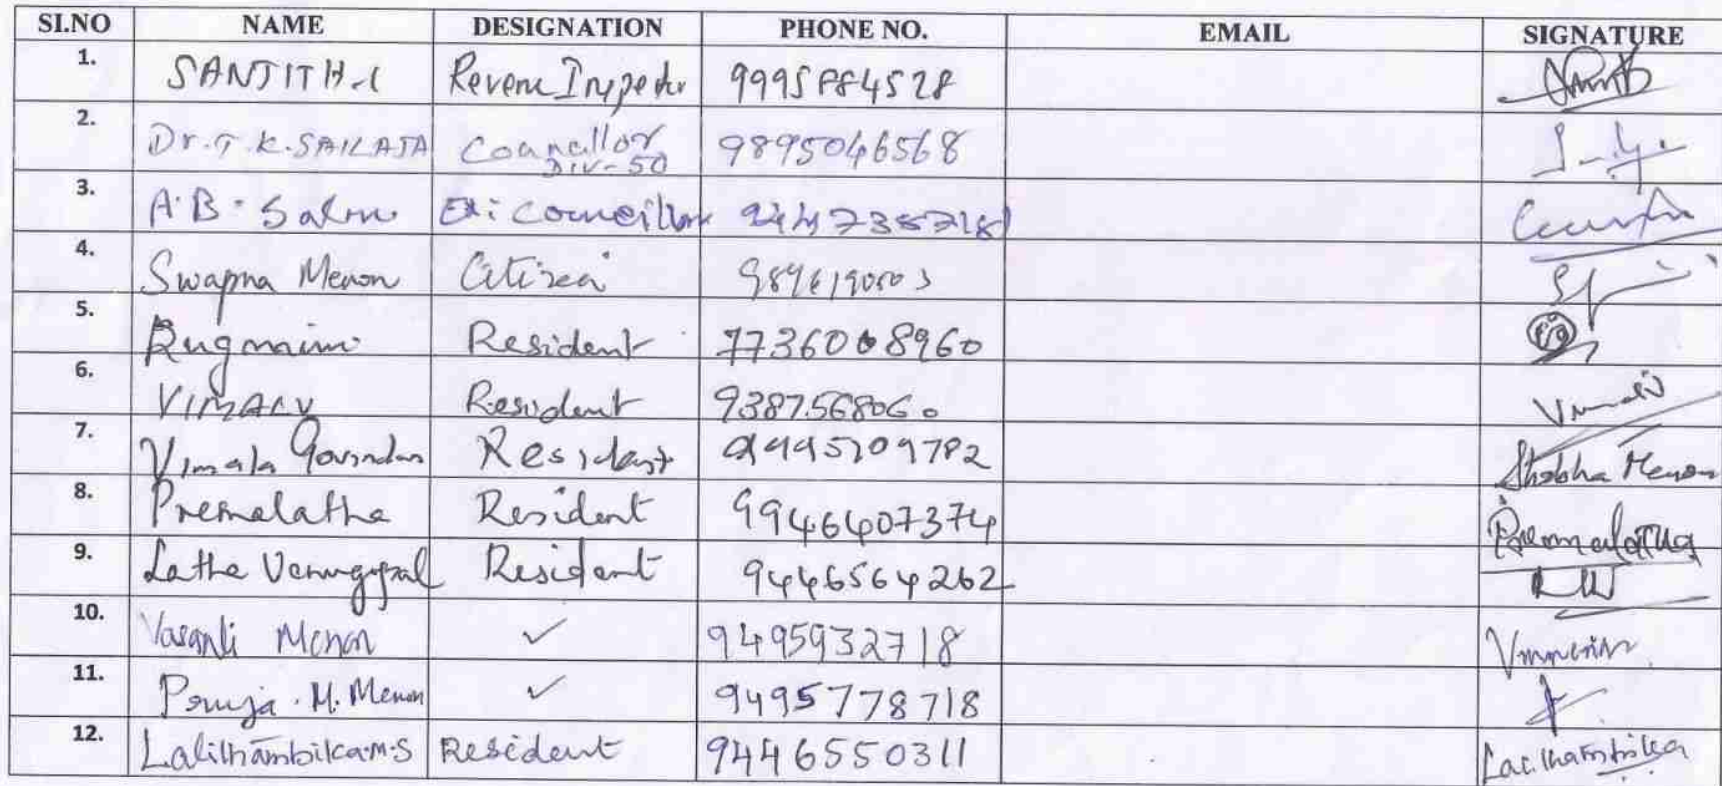 SI.NO NAME DESIGNATION PHONE NO. EMAIL SIGNATURE
1. SANJITH.I Revenue Inspector 9995884528
2. Dr. T. K. SAILAJA Councillor Div-50 9895046568
3. A.B. Councillor
4. Swapna Menon Citizen
5. Rugmini Resident 7736008960
6. VIMALV Resident 9387568060 Vimal
7. Vimala Govindan Resident 9995709782 Shobha Menon
8. Premalatha Resident 9946407374 Premalatha
9. Latha Venugopal Resident 9446564262
10. Vasanti Menon ✓ 9495932718
11. M. Menon ✓ 9495778718
12. Lalithambika.M.S Resident 9446550311 Lalithambika